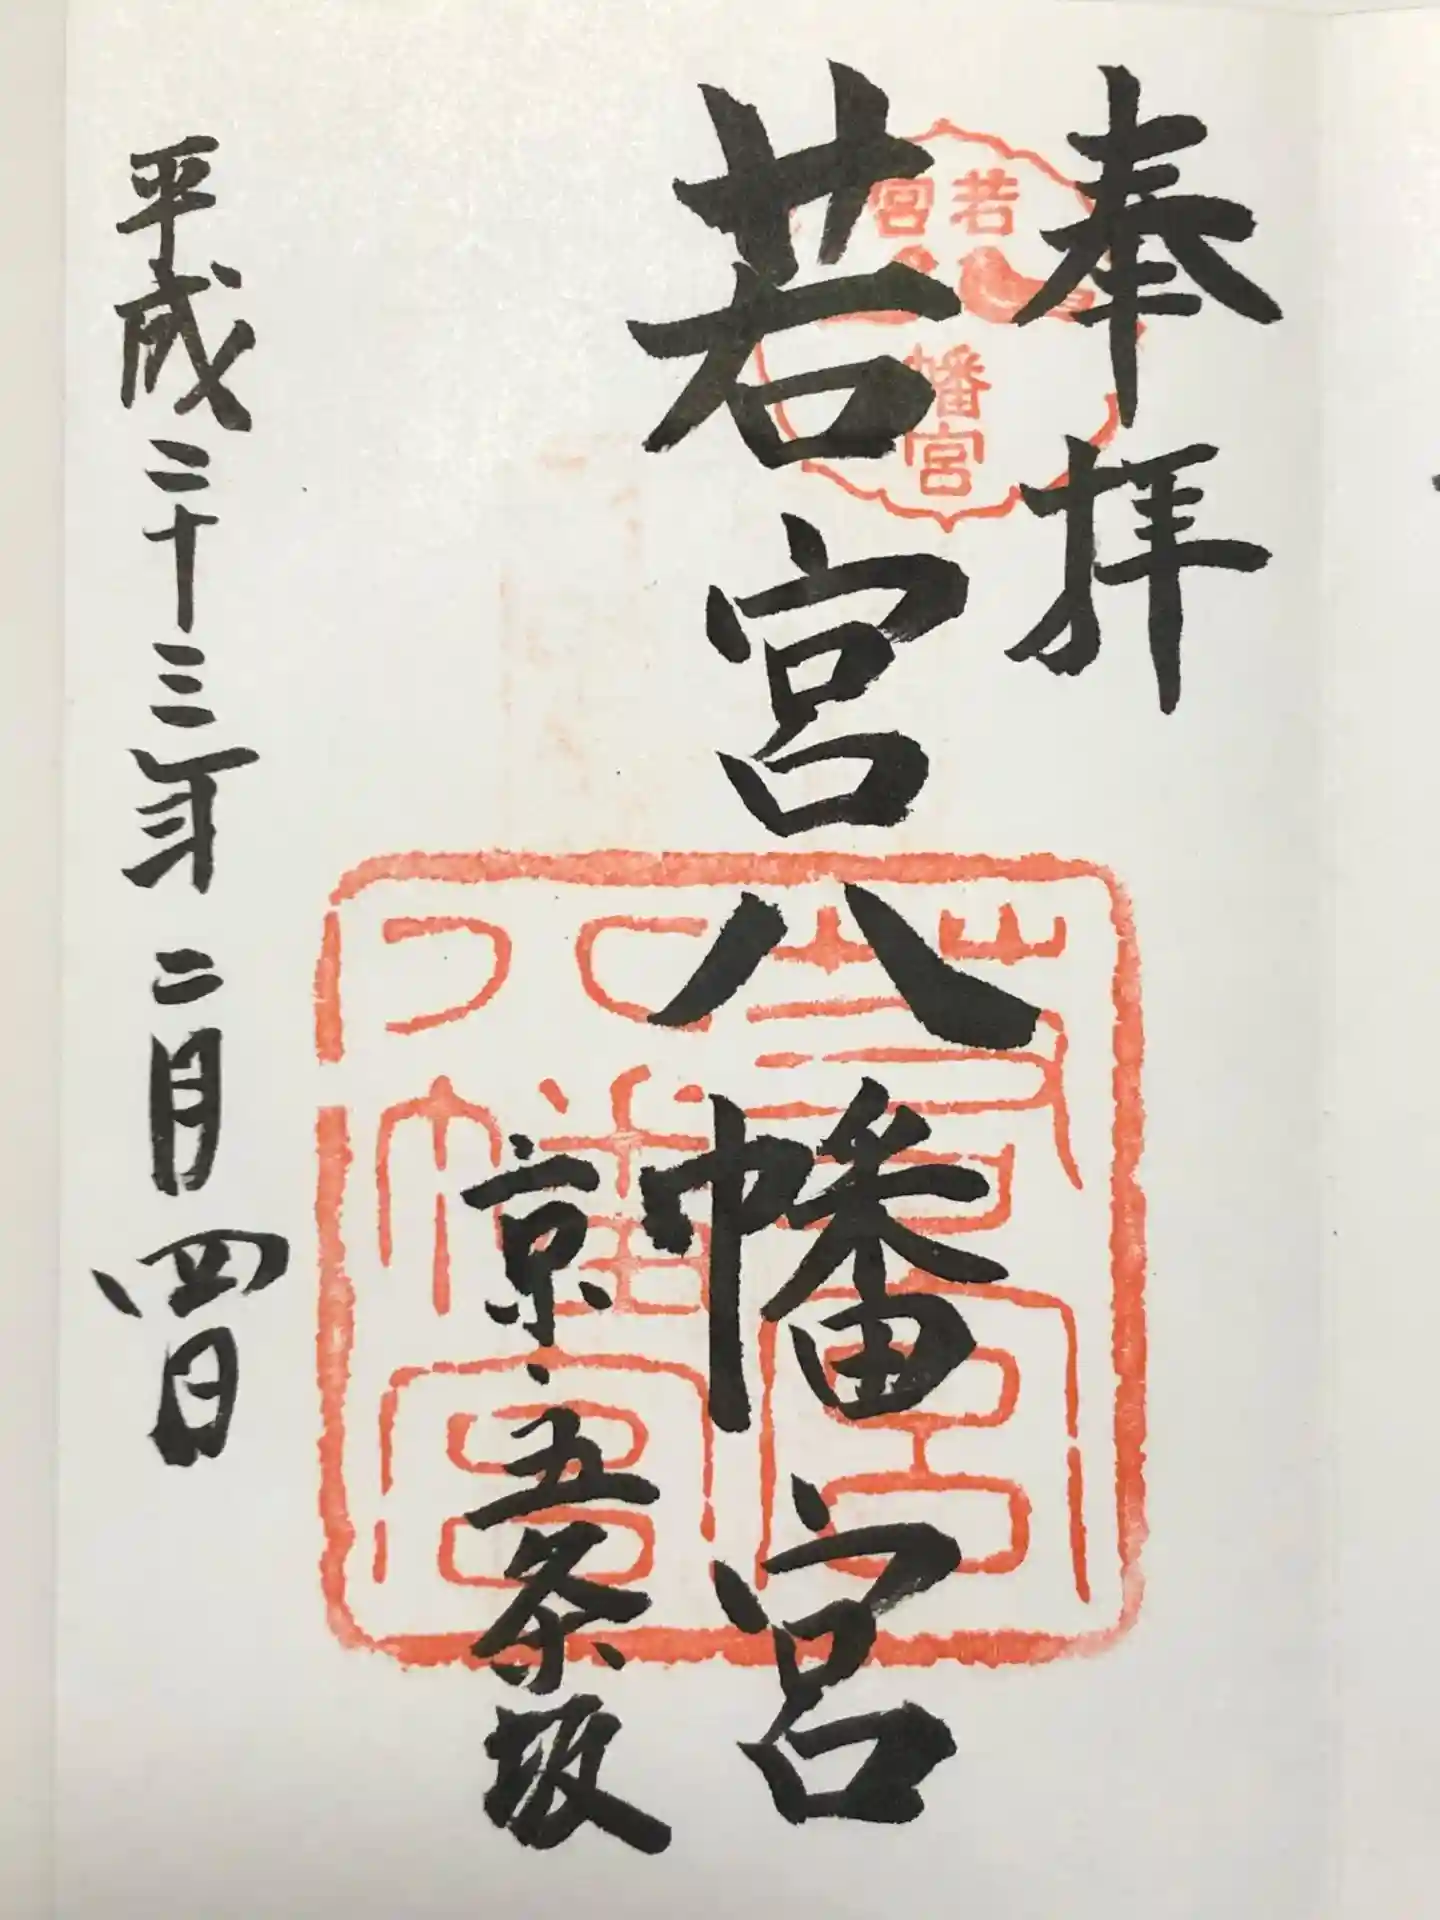 奉拝
若宮八幡宮
京・五条坂
平成二十三年二月四日
若宮
八
幡宮
若宮
八幡宮